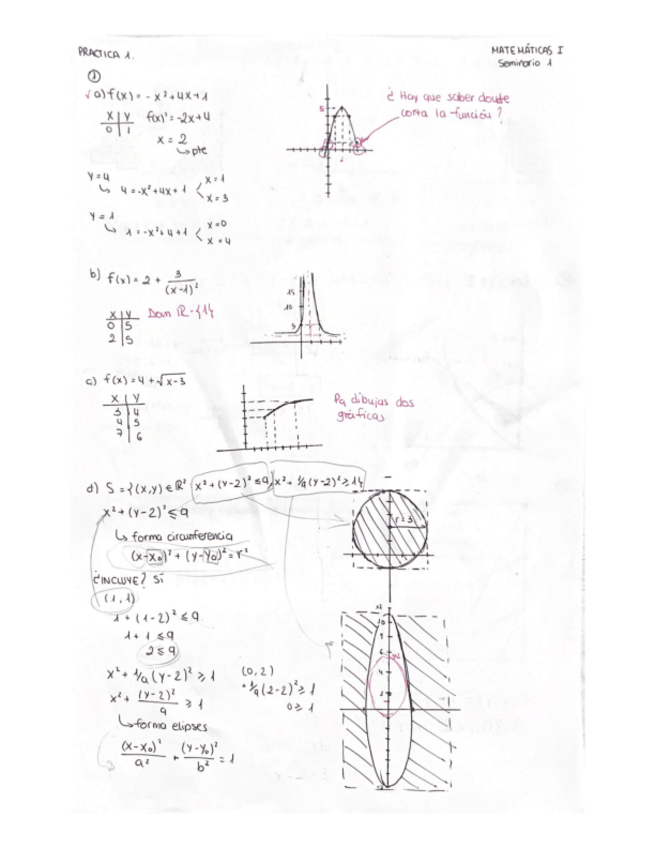 PRACTICA 1.
MATEMÁTICAS I
Seminario 1
①
a) f(x) = -x²+4x+1
x | y
0 | 1
f(x)' = -2x+4
x = 2
↳ pte
¿ Hay que saber donde
corta la función?
5
y=4
↳ 4 = -x²+4x+1 < x=1
x=3
y=1
↳ 1 = -x²+4+1 < x=0
x=4
b) f(x) = 2 + 3/(x-1)²
x | y
0 | 5
2 | 5
Dom ℝ-{1}
15
10
5
c) f(x) = 4 + √x-3
x | y
3 | 4
4 | 5
7 | 6
Pq dibujas dos
gráficas
d) S = {(x,y) ∈ ℝ² x²+(y-2)² ≤ 9, x² + 1/9 (y-2)² ≥ 1}
x² + (y-2)² ≤ 9
r=3
↳ forma circunferencia
(x-x₀)² + (y-y₀)² = r²
¿INCLUYE? SÍ
(1,1)
1 + (1-2)² ≤ 9
1 + 1 ≤ 9
2 ≤ 9
x² + 1/9 (y-2)² ≥ 1
(0,2)
x² + (y-2)²/9 ≥ 1
+ 1/9 (2-2)² ≥ 1
0 ≥ 1
↳ forma elipses
(x-x₀)²/a² + (y-y₀)²/b² = 1